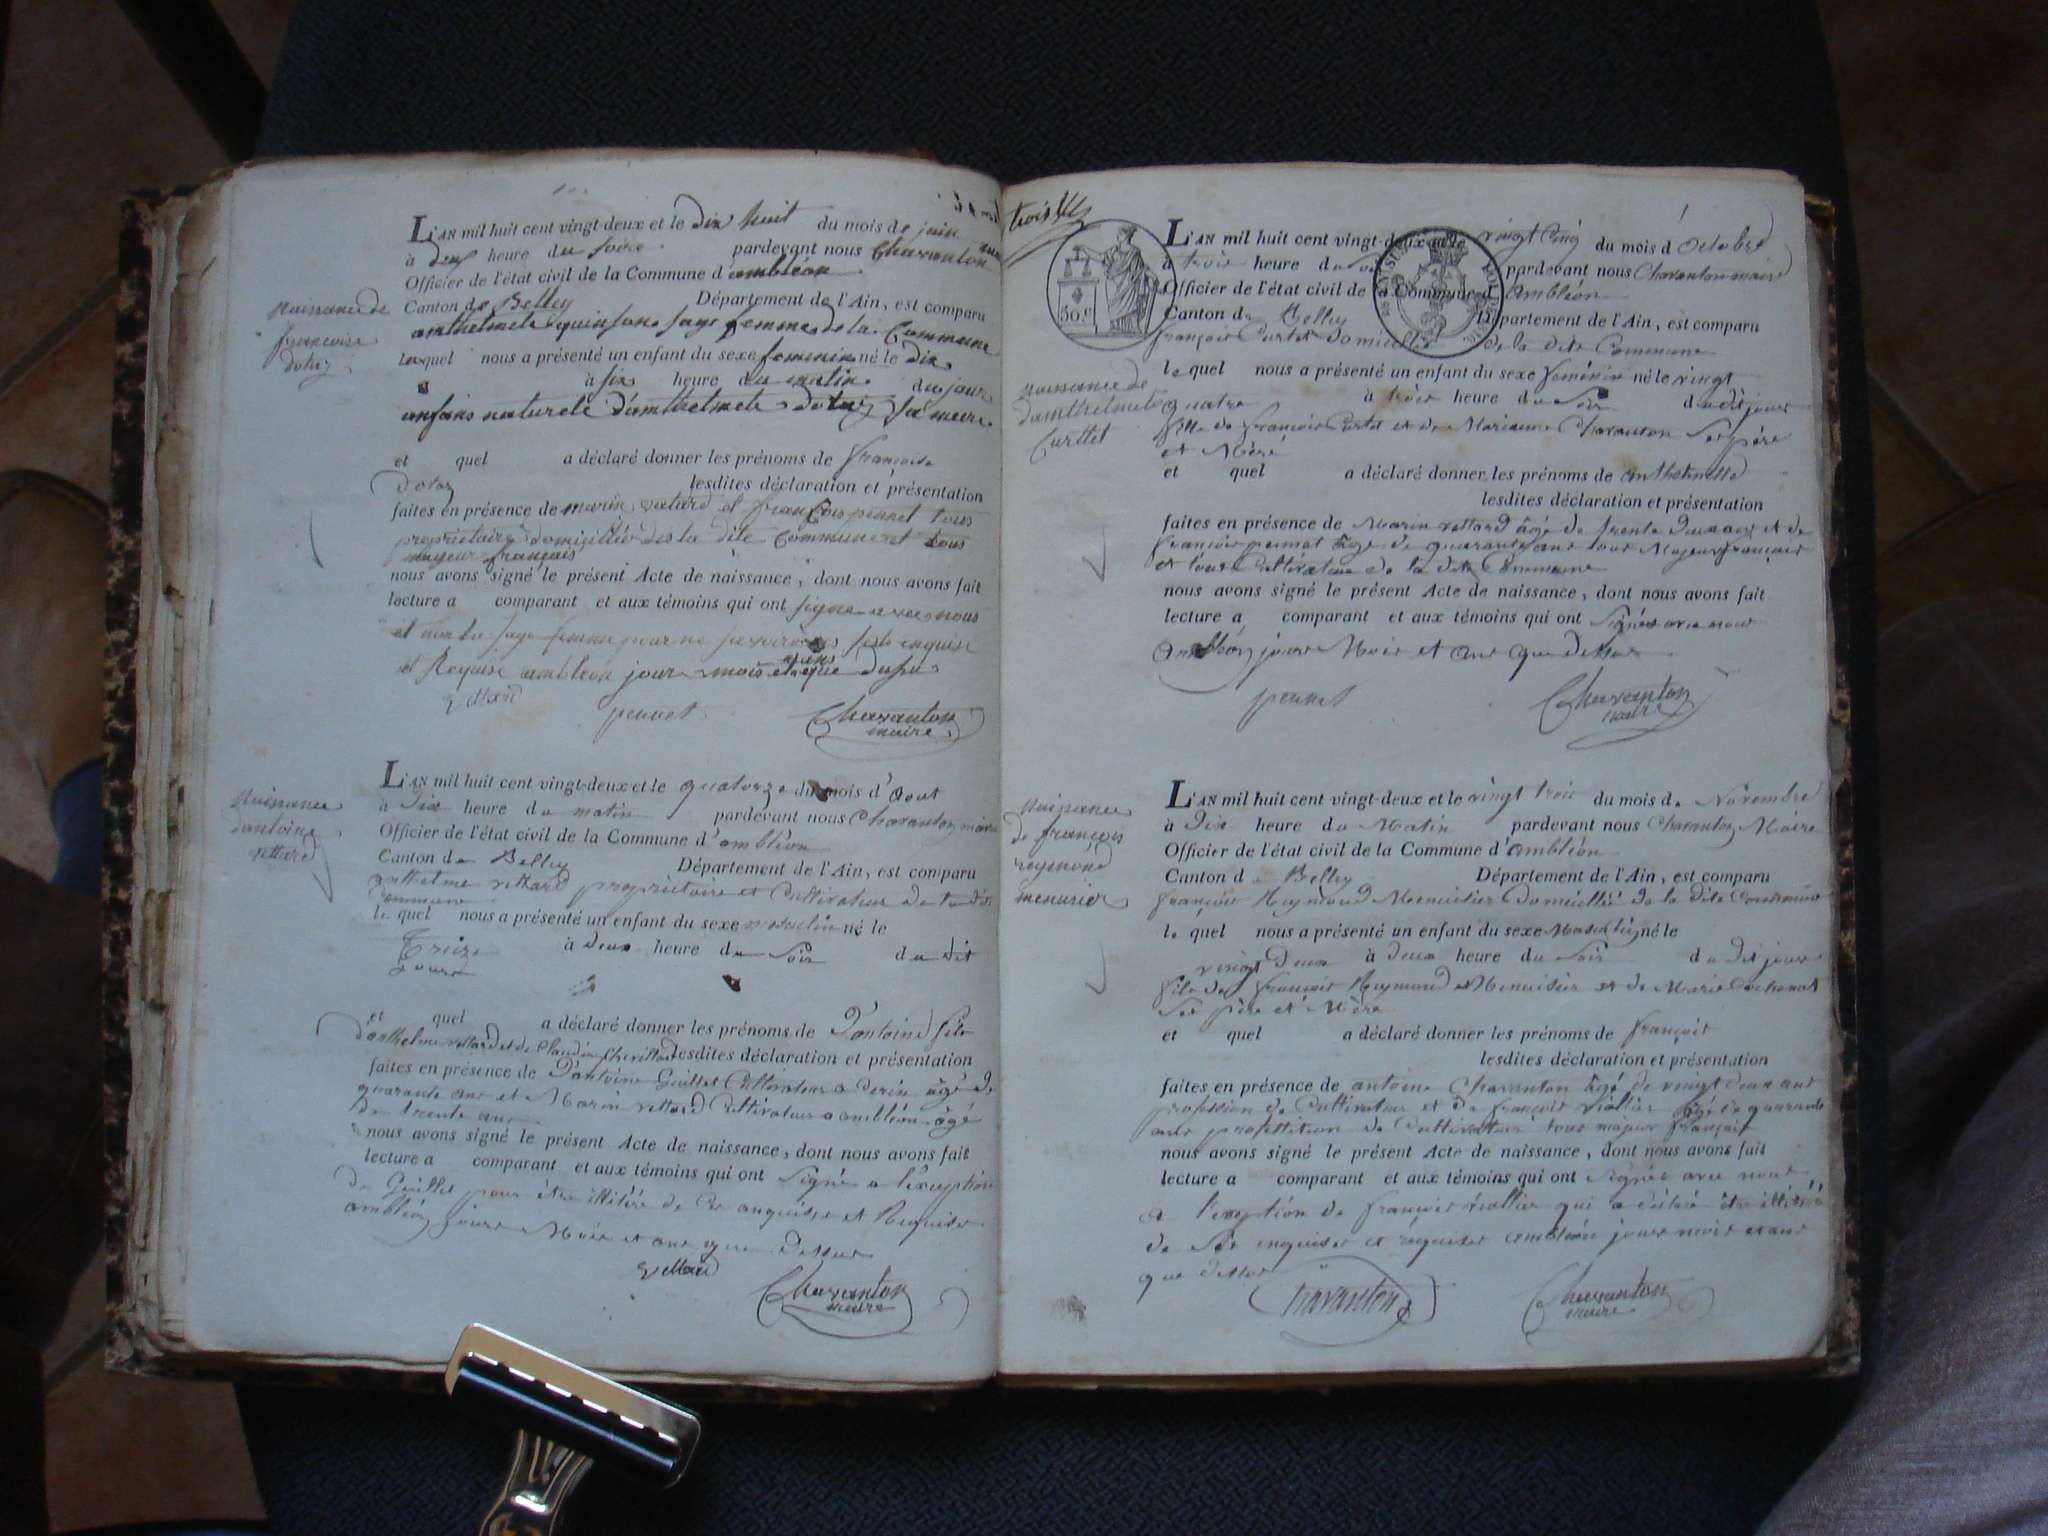 L'AN mil huit cent vingt-deux et le dix huit du mois de juin
à deux heure du soire. pardevant nous Chavanton maire
Officier de l'état civil de la Commune d'ambléon
Canton de Belley Département de l'Ain, est comparu
anthelmete quinson sage femme de la Commune
Laquel nous a présenté un enfant du sexe feminin né le dix
à six heure du matin du jour
enfans naturelé d'anthelmete dotaz sa mere
et quel a déclaré donner les prénoms de françoise
Dotaz lesdites déclaration et présentation
faites en présence de marin vetard et françois pennet tous
propriétaire domicillié des la dite Commune et tous
majeur français
nous avons signé le présent Acte de naissance, dont nous avons fait
lecture a comparant et aux témoins qui ont signe avec nous
et non la sage femme pour ne savoir enquise
et Requise ambleon jour mois et ans que dessus
Vettard pennet Chavanton
maire
naissance de
françoise
dotaz
L'AN mil huit cent vingt-deux et le quatorze du mois d'aout
à Dix heure du matin pardevant nous Chavanton maire
Officier de l'état civil de la Commune d'ambléon
Canton de Belley Département de l'Ain, est comparu
anthelme vettard propriétaire et Cultivateur de
Commune
le quel nous a présenté un enfant du sexe masculin né le
Treize à deux heure du Soir du dit
Jour
et quel a déclaré donner les prénoms de D'antoine fils
D'anthelme vettard et de Claudine Chevillard lesdites déclaration et présentation
faites en présence de D'antoine Guillet Cultivateur a âgé de
quarante ans et Marin vettard Cultivateur a ambléon âgé
de trente ans
nous avons signé le présent Acte de naissance, dont nous avons fait
lecture a comparant et aux témoins qui ont Signé a l'exception
de Guillet pour être illitéré de Ce enquiser et Requiser
ambléon jour Mois et ans que Dessus
Vettard Chavanton
maire
Naissance
d'antoine
vettard
trois
L'AN mil huit cent vingt-deux et le vingt Cinq du mois d'Octobre
à trois heure du pardevant nous Chavanton maire
Officier de l'état civil de la Commune d'Ambléon
Canton de Belley Département de l'Ain, est comparu
françois Curtet Domicillié de la dite Commune
le quel nous a présenté un enfant du sexe féminin né le vingt
quatre à trois heure du Soir du dit jour
fille de françois Curtet et de Marianne Chavanton Ses père
et Mère
et quel a déclaré donner les prénoms de
lesdites déclaration et présentation
faites en présence de Marin vettard âgé de trente deux ans et de
françois pennet âgé de quarante ans tous Majeur français
et tous Cultivateur de la dite Commune
nous avons signé le présent Acte de naissance, dont nous avons fait
lecture a comparant et aux témoins qui ont Signés avec nous
Ambléon jour Mois et ans que dessus
pennet Chavanton
maire
30.c
naissance de
d'anthelmete
Curttet
L'AN mil huit cent vingt-deux et le vingt trois du mois de Novembre
à Dix heure du Matin pardevant nous Chavanton Maire
Officier de l'état civil de la Commune d'ambléon
Canton de Belley Département de l'Ain, est comparu
françois Raymond Menuisier Domicillié de la dite Commune
le quel nous a présenté un enfant du sexe Masculin né le
vingt Deux à deux heure du Soir du dit jour
fils de françois Raymond Menuisier et de Marie
Ses père et Mère
et quel a déclaré donner les prénoms de françois
lesdites déclaration et présentation
faites en présence de antoine Chavanton âgé de vingt deux ans
profession de Cultivateur et de françois âgé de quarante
ans profettition de Cultivateur tous majeur français
nous avons signé le présent Acte de naissance, dont nous avons fait
lecture a comparant et aux témoins qui ont signés avec nous
a l'exeption de françois qui a déclaré être illitéré
de Ses enquiser et requiser ambléon jour mois et ans
que dessus
Chavanton Chavanton
maire
Naissance
de françois
reymond
menuisier